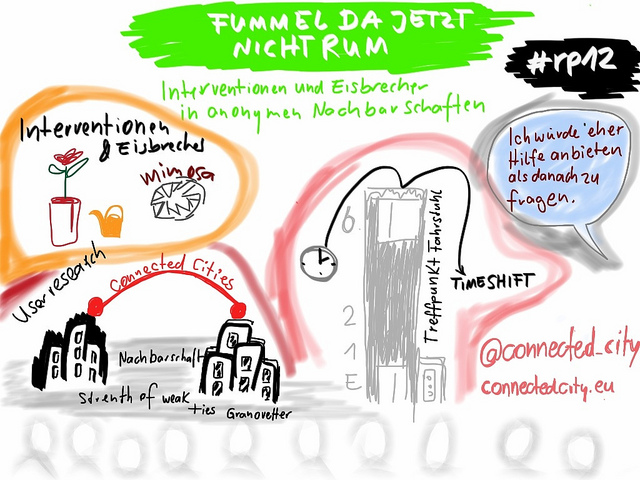 FUMMEL DA JETZT
NICHT RUM
#rp12
Interventionen und Eisbrecher
in anonymen Nachbarschaften
Interventionen
& Eisbrecher
mimosa
Ich würde eher
Hilfe anbieten
als danach zu
fragen.
6
2
1
E
Treffpunkt Fahrstuhl
TIMESHIFT
User research
Connected Cities
Nachbarschaft
Strenth of weak
ties Granovetter
@connected_city
connectedcity.eu